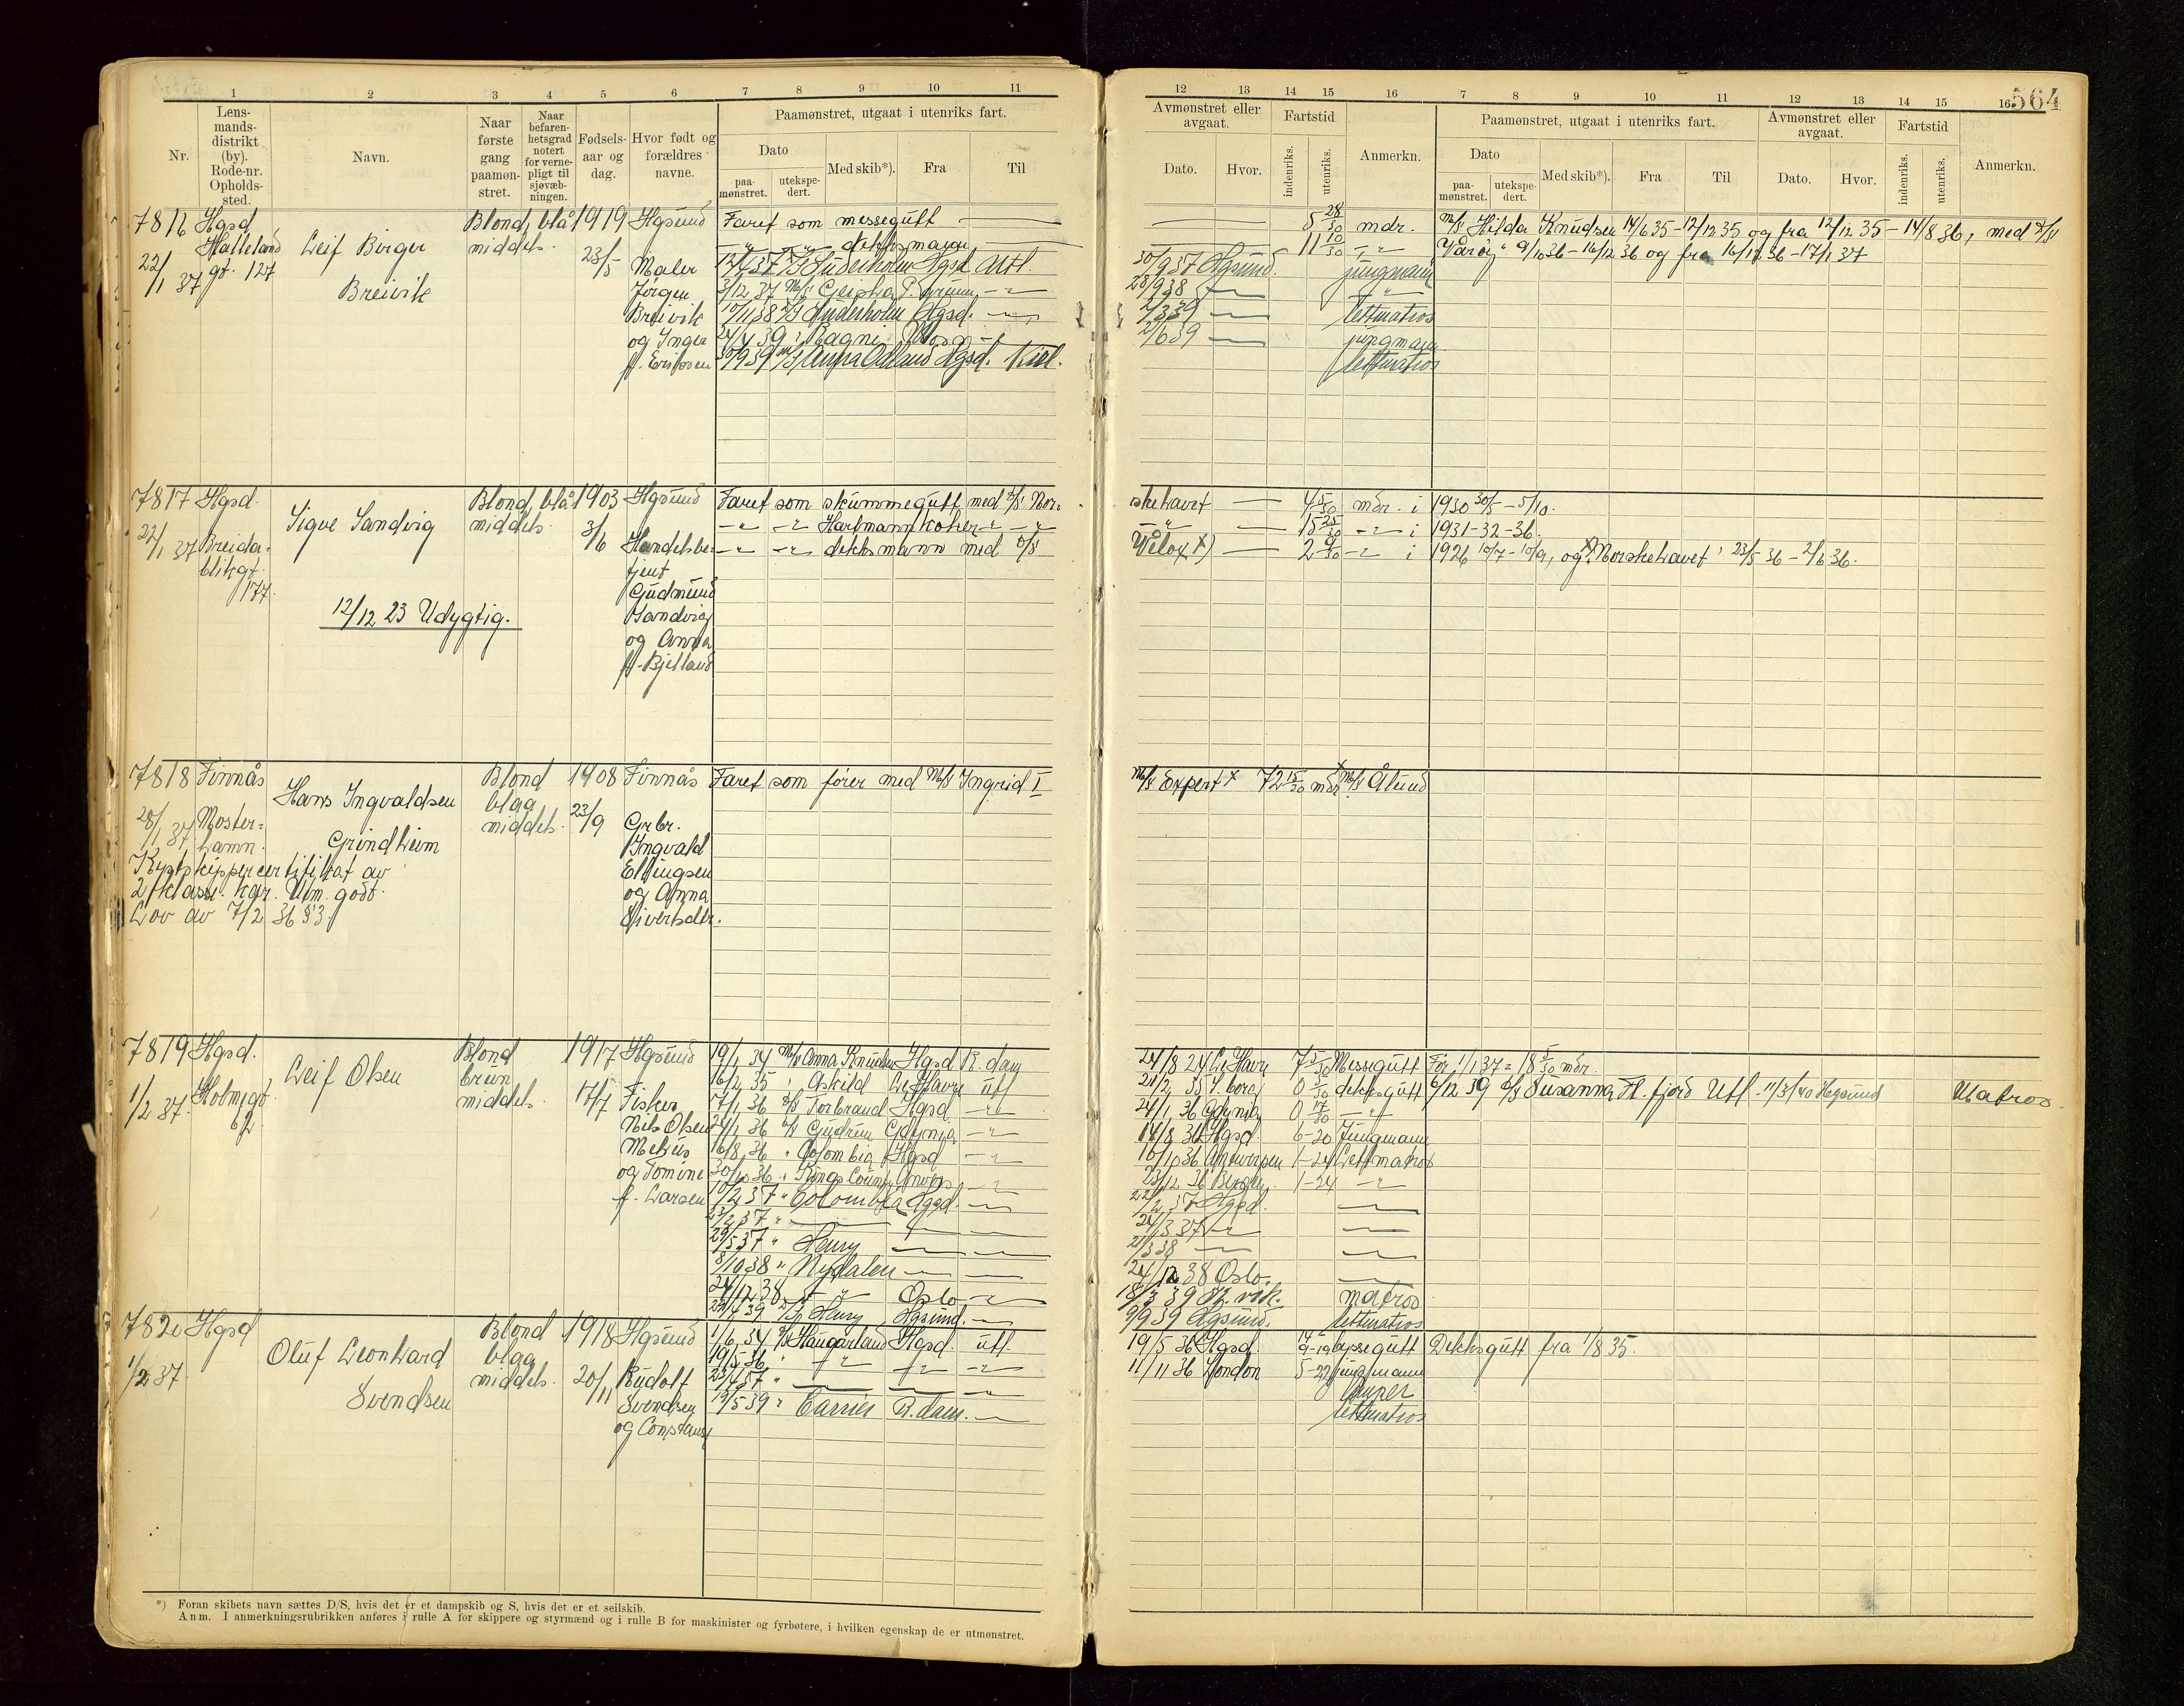 1 2 3 4 5 6 7 8 9 10 11
Nr.
Lens-
mands-
distrikt
(by).
Rode-nr.
Opholds-
sted.
Navn.
Naar
første
gang
paamøn-
stret.
Naar
befaren-
hetsgrad
notert
for verne-
pligt til
sjøvæb-
ningen.
Fødsels-
aar og
dag.
Hvor født og
forældres
navne.
Paamønstret, utgaat i utenriks fart.
Dato
paa-
mønstret.
utekspe-
dert.
Med skib*).
Fra
Til
7816 Hgsd
Halleland
gt. 127
22/1 37
Leif Birger
Breivik
Blond, blå
middels.
1919
23/5
Hgsund
Maler
Jørgen
Breivik
og Inger
f. Eriksen
Faret som messegutt
dekksmann
Hgsd Utl.
10/1 38 Süderholm Hgsd.
24/4 39 Ragni
30/9 39 M/S Anna Odland Hgsd. Kiel.
7817 Hgsd.
22/1 37 Breida-
blikgt.
177
Sigve Sandvig
12/12 23 Udygtig.
Blond, blå
middels.
1903
3/6
Hgsund
Handelsbe-
tjent
Gudmund
Sandvig
og Anna
f. Bjelland
Faret som skummegutt med D/S Nor-
-"- -"- Hartmann koker -"- -"-
-"- -"- dekksmann med D/S
7818 Finnås
28/1 37 Moster-
hamn.
Hans Ingvaldsen
Grindheim
Kystskippercertifikat av
2 klasse. kar. Um. godt.
Lov av 7/2 36 §3.
Blond
blaa
middels.
1908
23/9
Finnås
Grbr.
Ingvald
Ellingsen
og Anna
Siversdtr.
Faret som fører med M/S Ingrid I
7819 Hgsd.
1/2 37. Holmegt.
62
Leif Olsen
Blond
brun
middels.
1917
17/7
Hgsund
Fisker
Nils Olsen
Mekius
og Tomine
f. Larsen
19/1 34 M/S Anna Knudsen Hgsd R.dam
16/2 35 " Askild Le Havre utl
17/1 36 D/S Torbrand Hgsd -"-
24/1 36 D/S Gudrun Gdynia -"-
16/8 36 " Colombia Hgsd -"-
30/10 36 " Kings County Antwps -"-
10/2 37 " Colombia Hgsd. -"-
23/2 37 "
29/5 37 " Henry
8/10 38 " Nydalen
24/12 38 " Oslo
39 Henry Hgsund.
7820 Hgsd
1/2 37
Oluf Leonhard
Svendsen
Blond
blaa
middels.
1918
20/11
Hgsund
Rudolf
Svendsen
og Constanse
1/6 34 D/S Haugarland Hgsd. utl.
19/5 36 " -"- -"- -"-
19/5 39 " Carrier R.dam.
*) Foran skibets navn sættes D/S, hvis det er et dampskib og S, hvis det er et seilskib.
Anm. I anmerkningsrubrikken anføres i rulle A for skippere og styrmænd og i rulle B for maskinister og fyrbøtere, i hvilken egenskap de er utmønstret.
12 13 14 15 16 7 8 9 10 11 12 13 14 15 16
564
Avmønstret eller
avgaat.
Dato.
Hvor.
Fartstid
indenriks.
utenriks.
Anmerkn.
Paamønstret, utgaat i utenriks fart.
Dato
paa-
mønstret.
utekspe-
dert.
Med skib*).
Fra
Til
Avmønstret eller
avgaat.
Dato.
Hvor.
Fartstid
indenriks.
utenriks.
Anmerkn.
5 28/30 mdr. M/S Hilda Knudsen 14/6 35 - 12/12 35 og fra 12/12 35 - 14/8 36, med D/S
11 10/30 -"- "Vårøy" 9/10 36 - 16/12 36 og fra 16/12 36 - 17/1 37
30/9 37 Hgsund. jungmann
28/9 38 -"-
2/3 39 lettmatros
2/6 39 jungmann
lettmatros
skehavet 4 5/30 mdr. i 1930 30/5 - 5/10.
-"- 15 25/30 -"- i 1931-32-36.
Velox x) 2 9/30 -"- i 1926 10/7 - 10/9, og x) "Norskehavet" 23/5 36 - 2/6 36.
M/S Expert x 72 15/30 mdr x M/S Ålund
24/8 34 Le Havre 7 5/30 Messegutt Før 1/1 37 = 18 5/30 mdr.
0 dekksgutt 6/12 39 D/S Susanna Fl. fjord Utl. 11/3/40 Hgsund Matros
24/1 36 Gdynia 0 17/30 -"-
14/8 36 Hgsd. 6-20 Jungmann
10/10 36 Antwerpen 1-24 Lettmatros
23/12 36 Bergen 1-24 -"-
22/2 37 Hgsd.
24/3 37 -"-
21/3 38
24/12 38 Oslo.
18/3 39 matros
9/9 39 Hgsund. lettmatros
19/5 36 Hgsd byssegutt Dekksgutt fra 1/8 35.
11/11 36 London 5-22 jungmann
lemper
lettmatros